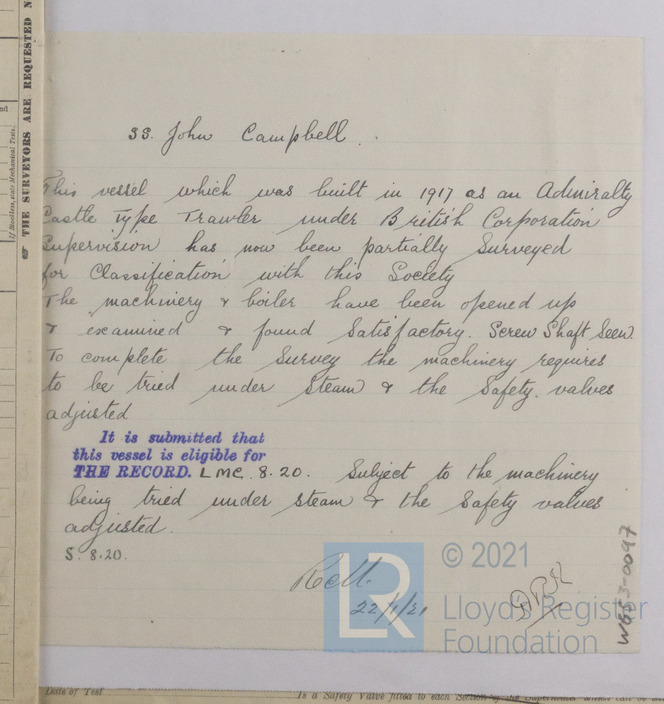 THE SURVEYORS ARE REQUESTED N
If Stootless, state Mechanical Tests.
nd
SS. John Campbell.
This vessel which was built in 1917 as an Admiralty
Castle Type Trawler under British Corporation
Supervision has now been partially Surveyed
for Classification with this Society
The machinery & boiler have been opened up
& examined & found Satisfactory. Screw Shaft Seen.
To complete the Survey the machinery requires
to be tried under Steam & the Safety. valves
adjusted
It is submitted that
this vessel is eligible for
THE RECORD. LMC. 8.20. Subject to the machinery
being tried under steam & the Safety valves
adjusted.
S. 8.20.
22/1/21
W653-0097
LR
© 2021
Lloyd's Register
Foundation
Date of Test
Is a Safety Valve fitted to each Section of the Superheater which can be